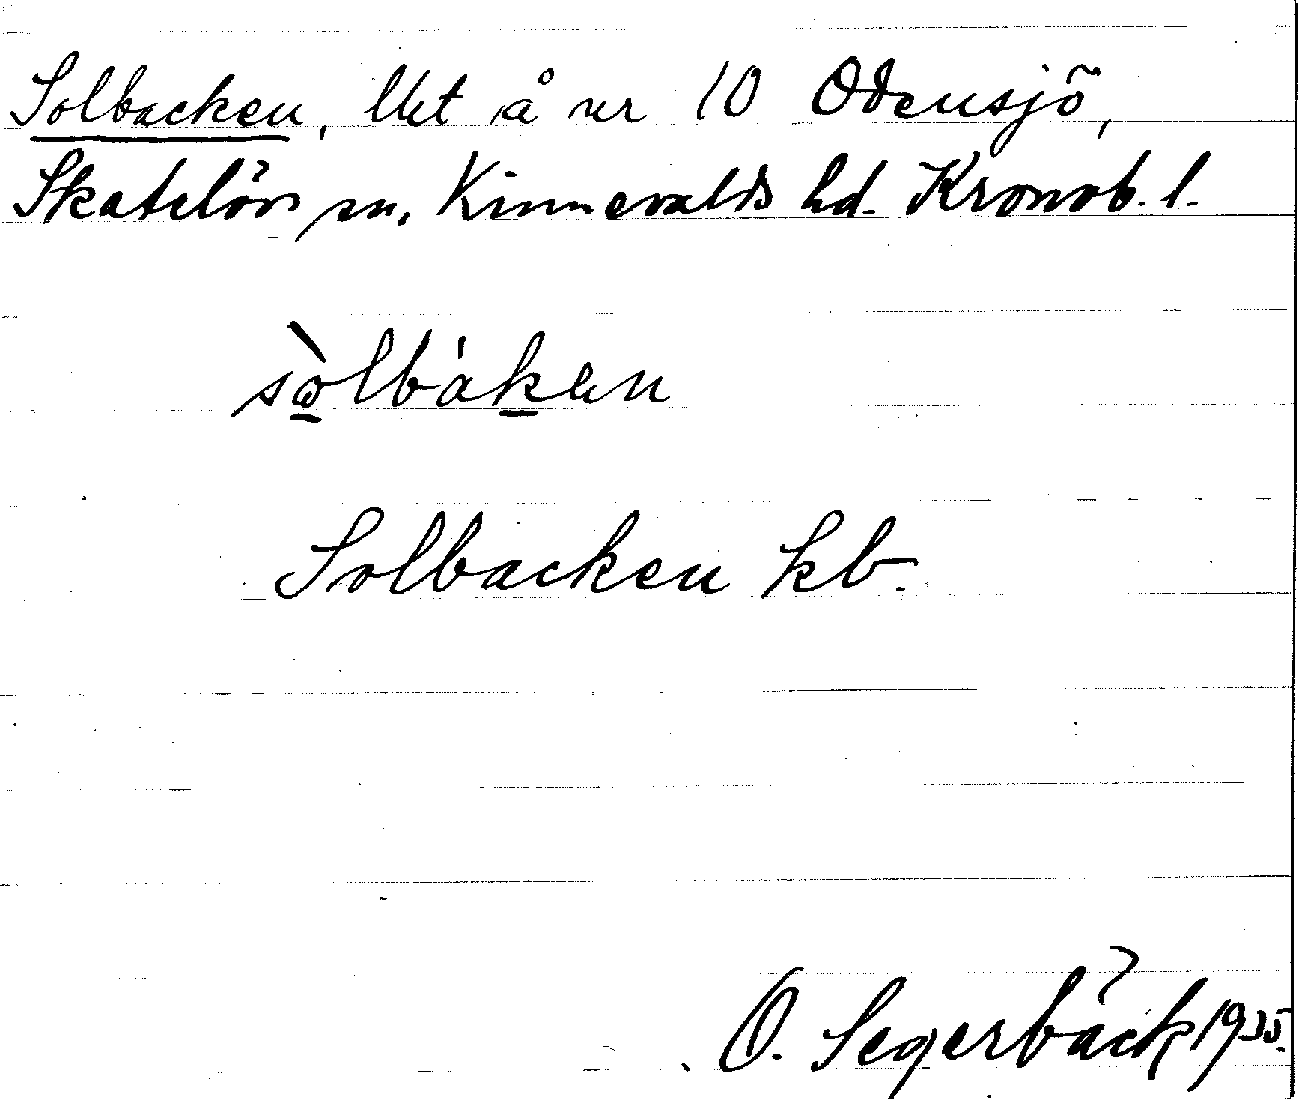 Solbacken, lht å nr 10 Odensjö,
Skatelövs sn, Kinnevalds hd. Kronob. l.
sòlbáken
Solbacken kb.
O. Segerbäck 1935.